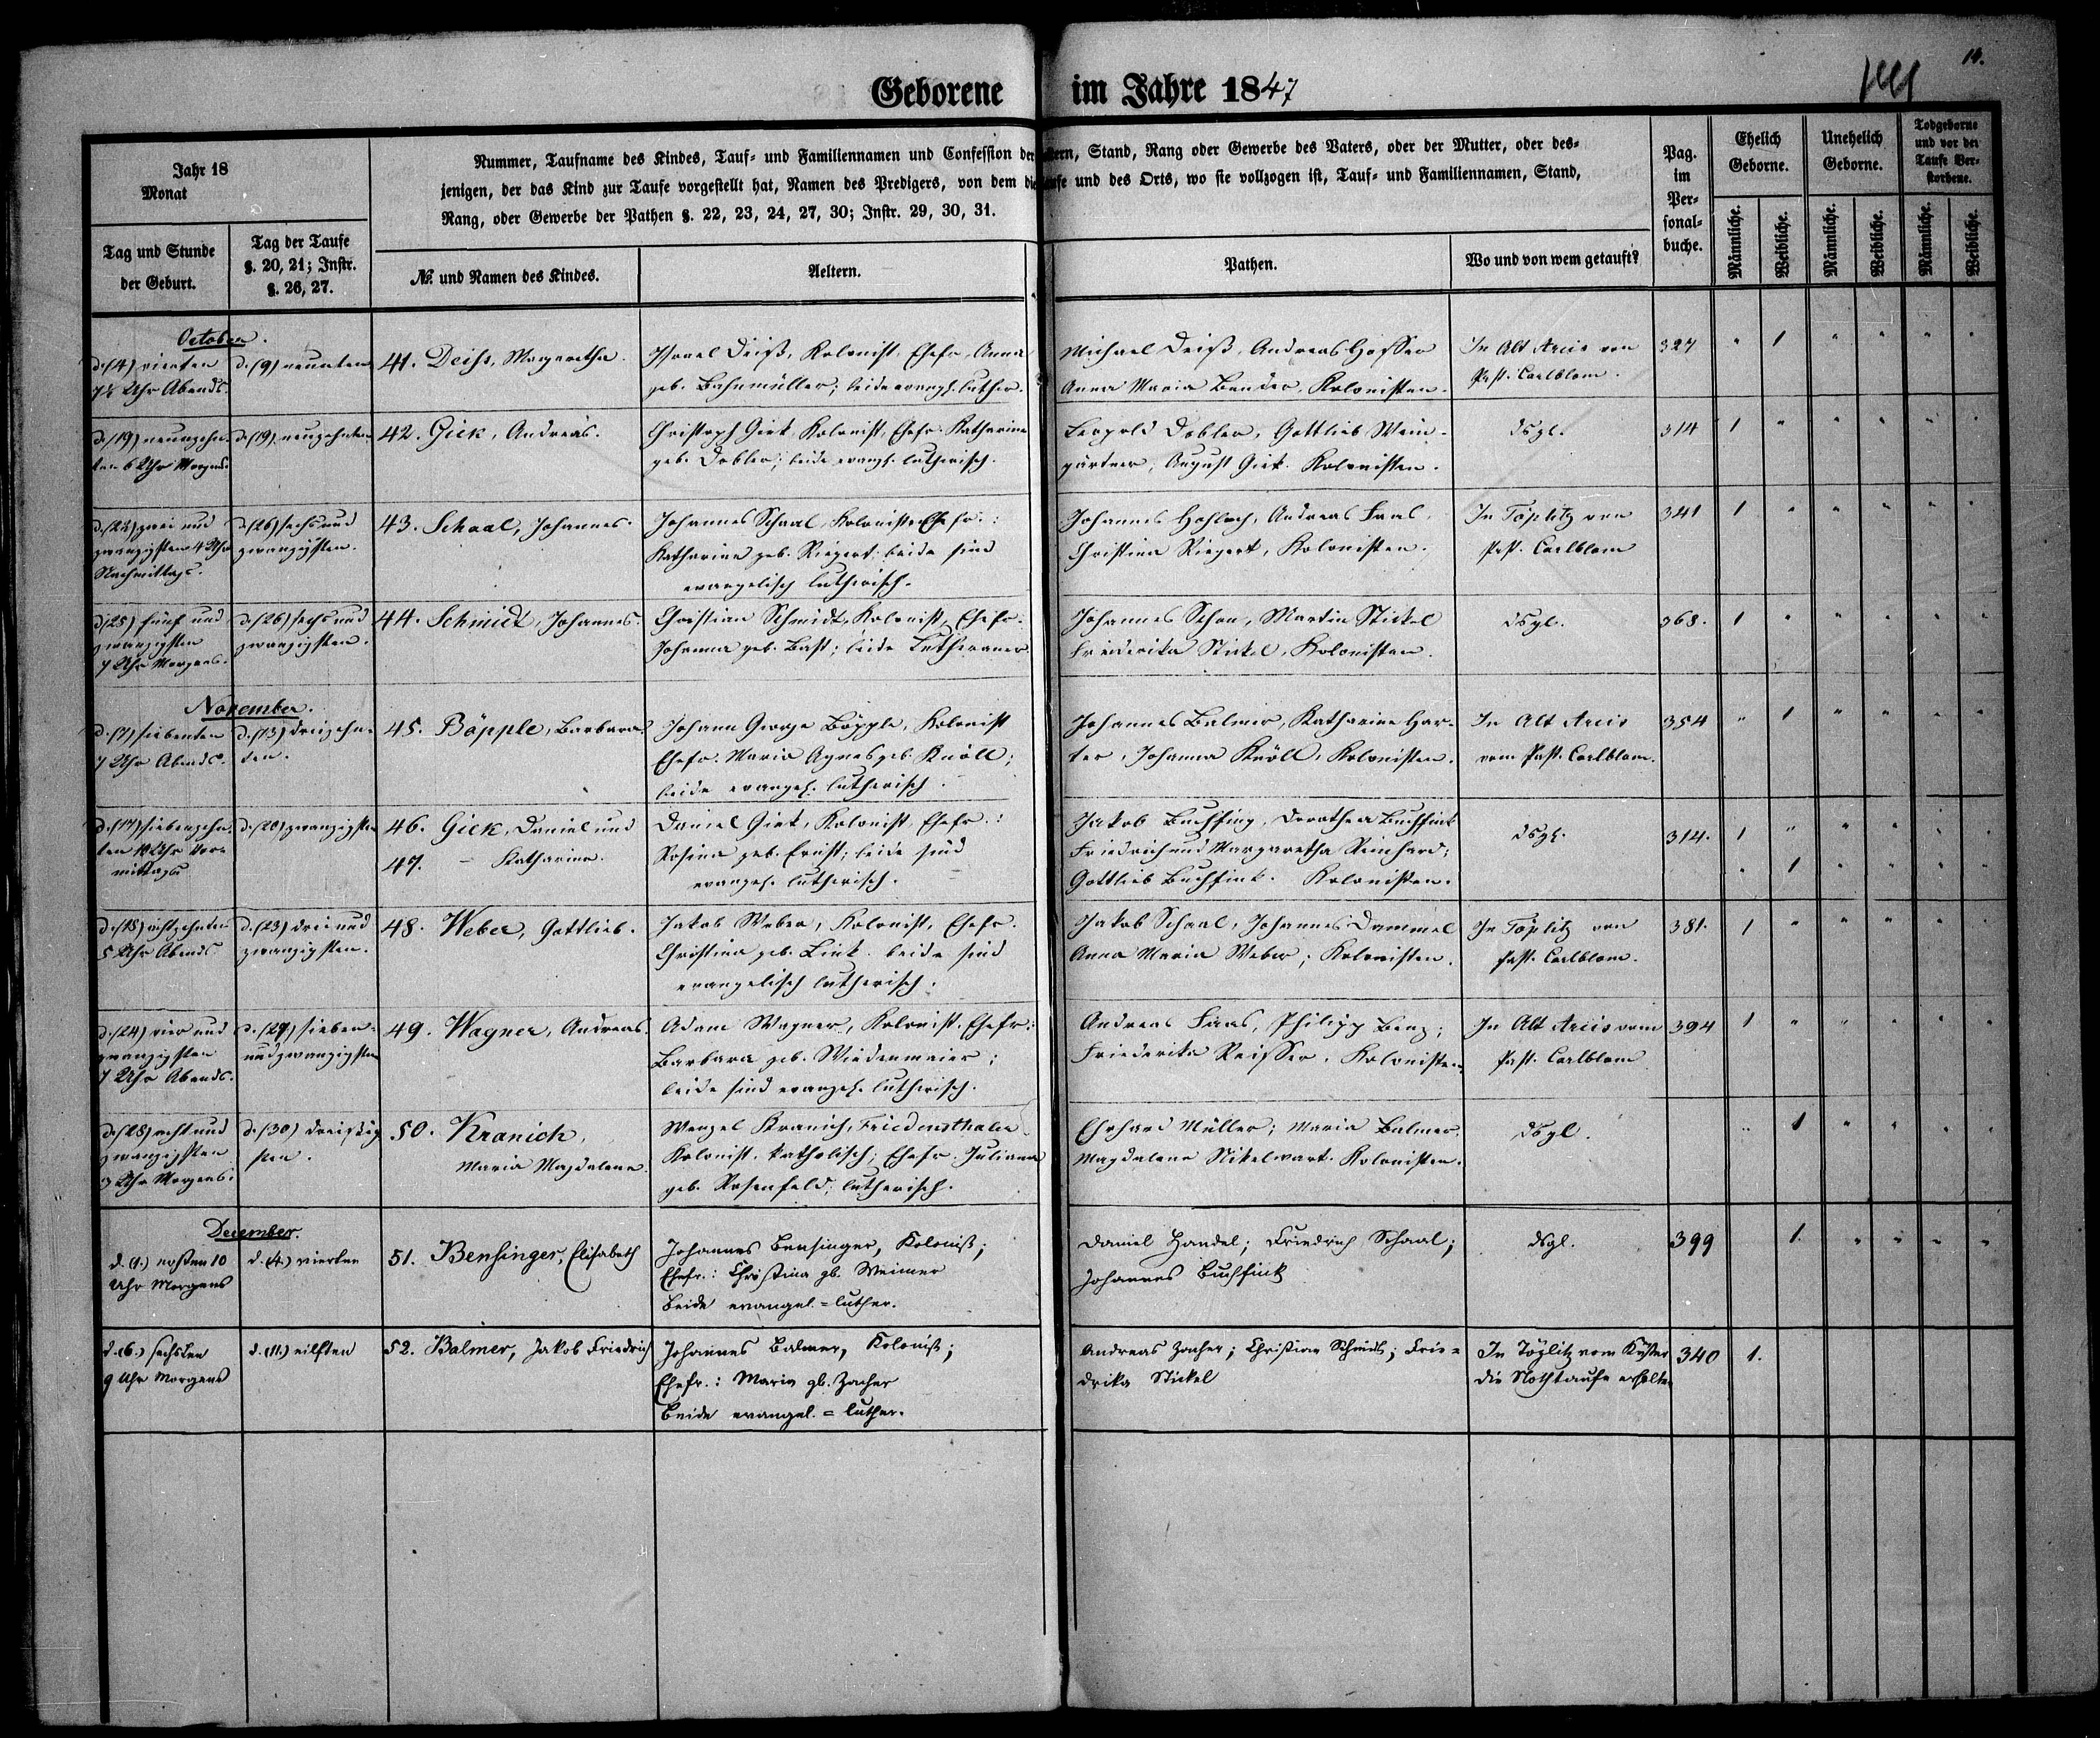 Geborene im Jahre 1847
14.
Jahr 18
Monat
Nummer, Taufname des Kindes, Tauf- und Familiennamen und Confession der Aeltern, Stand, Rang oder Gewerbe des Vaters, oder der Mutter, oder des-
jenigen, der das Kind zur Taufe vorgestellt hat, Namen des Predigers, von dem die Taufe und des Orts, wo sie vollzogen ist, Tauf- und Familiennamen, Stand,
Rang, oder Gewerbe der Pathen §. 22, 23, 24, 27, 30; Instr. 29, 30, 31.
Pag.
im
Per-
sonal-
buche.
Ehelich
Geborne.
Unehelich
Geborne.
Todgeborne
und vor der
Taufe Ver-
storbene.
Männliche.
Weibliche.
Männliche.
Weibliche.
Männliche.
Weibliche.
Tag und Stunde
der Geburt.
Tag der Taufe
§. 20, 21; Instr.
§. 26, 27.
№. und Namen des Kindes.
Aeltern.
Pathen.
Wo und von wem getauft?
October.
d. (4) vierten
Uhr Abends.
d. (9) neunten
41. Deiss, Margaretha.
Israel Deiß, Kolonist, Ehefr. Anna
geb. Bahnmüller; beide evangl. luther.
Michael Deiß, Andreas Hosser
Anna Maria Bender, Kolonisten.
In Alt Arcis von
Past. Carlblom.
327 " 1 " " " "
d. (19) neunzehn-
ten 6 Uhr Morgens
d. (19) neunzehnten
42. Giek, Andreas.
Christoph Giek, Kolonist, Ehefr. Katharina
geb. Dobler; beide evangl. lutherisch.
Leopold Dobler, Gottlieb Wein-
gärtner, August Giek. Kolonisten.
dsgl.
314 1 " " " " "
d. (22) zwei und
zwanzigsten 4 Uhr
Nachmittags.
d. (26) sechs und
zwanzigsten.
43. Schaal, Johannes.
Johannes Schaal, Kolonist, Ehefr.:
Katharina geb. Riegert. beide sind
evangelisch lutherisch.
Johannes Hohloch, Andreas Faas,
Christina Riegert, Kolonisten.
In Töplitz von
Past. Carlblom
341 1 " " " " "
d. (25) fünf und
zwanzigsten
7 Uhr Morgens.
d. (26) sechs und
zwanzigsten.
44. Schmidt, Johannes.
Christian Schmidt, Kolonist, Ehefr.
Johanna geb. Bast; beide Lutheraner
Johannes Schon, Martin Stickel
Friederika Stickel, Kolonisten.
dsgl.
368. 1 " " " " "
November.
d. (7) siebenten
7 Uhr Abends.
d. (13) dreizehn-
ten.
45. Bäpple, Barbara.
Johann George Bäpple, Kolonist
Ehefr. Maria Agnes geb. Knöll;
beide evangel. lutherisch.
Johannes Balmer, Katharina Har-
ter, Johanna Knöll, Kolonisten.
In Alt Arcis
vom Past. Carlblom.
354 " 1 " " " "
d. (17) siebenzehn-
ten 10 Uhr Vor-
mittags
d. (20) zwanzigsten
46. Giek, Daniel und
47. - Katharina.
Daniel Giek, Kolonist, Ehefr.:
Rosina geb. Ernst; beide sind
evangel. lutherisch.
Jakob Buchfing, Dorothea Buchfink
Friedrich und Margaretha Reinhard;
Gottlieb Buchfink. Kolonisten.
dsgl.
314. 1 " " " " "
" 1 " " " "
d. (18) achtzehnten
5 Uhr Abends
d. (23) drei und
zwanzigsten.
48. Weber, Gottlieb.
Jakob Weber, Kolonist, Ehefr.
Christina geb. Link. beide sind
evangelisch lutherisch.
Jakob Schaal, Johannes Dammel
Anna Maria Weber; Kolonisten.
In Töplitz von
Past. Carlblom.
381. 1 " " " " "
d. (24) vier und
zwanzigsten
7 Uhr Abends.
d. (27) sieben-
und zwanzigsten
49. Wagner, Andreas.
Adam Wagner, Kolonist. Ehefr.:
Barbara geb. Wiedenmaier;
beide sind evangel. lutherisch.
Andreas Faas, Philipp Benz;
Friederika Reisser, Kolonisten.
In Alt Arcis vom
Past. Carlblom
394 1 " " " " "
d. (28) acht und
zwanzigsten
3 Uhr Morgens.
d. (30) dreißig-
sten.
50. Kranich,
Maria Magdalena.
Wenzel Kranich, Friedensthaler
Kolonist. katholisch; Ehefr. Juliana
geb. Rosenfeld; lutherisch.
Ehrhard Müller; Maria Balmer.
Magdalena Nikelwart. Kolonisten.
dsgl.
" 1 " " " "
December.
d. (1.) ersten 10
Uhr Morgens
d. (4.) vierten
51. Bensinger, Elisabeth
Johannes Bensinger, Kolonist;
Ehefr.: Christina gb. Weimer
Beide evangel.=luther.
Daniel Handel; Friedrich Schaal;
Johannes Buchfink
dsgl.
399 1. " " " "
d. (6.) sechsten
9 Uhr Morgens
d. (11.) eilften
52. Balmer, Jakob Friedrich
Johannes Balmer, Kolonist;
Ehefr.: Maria gb. Zacher
Beide evangel.=luther.
Andreas Zacher; Christian Schmidt; Frie=
drika Stickel
In Töplitz vom Küster
die Nothtaufe erhalten
340 1.